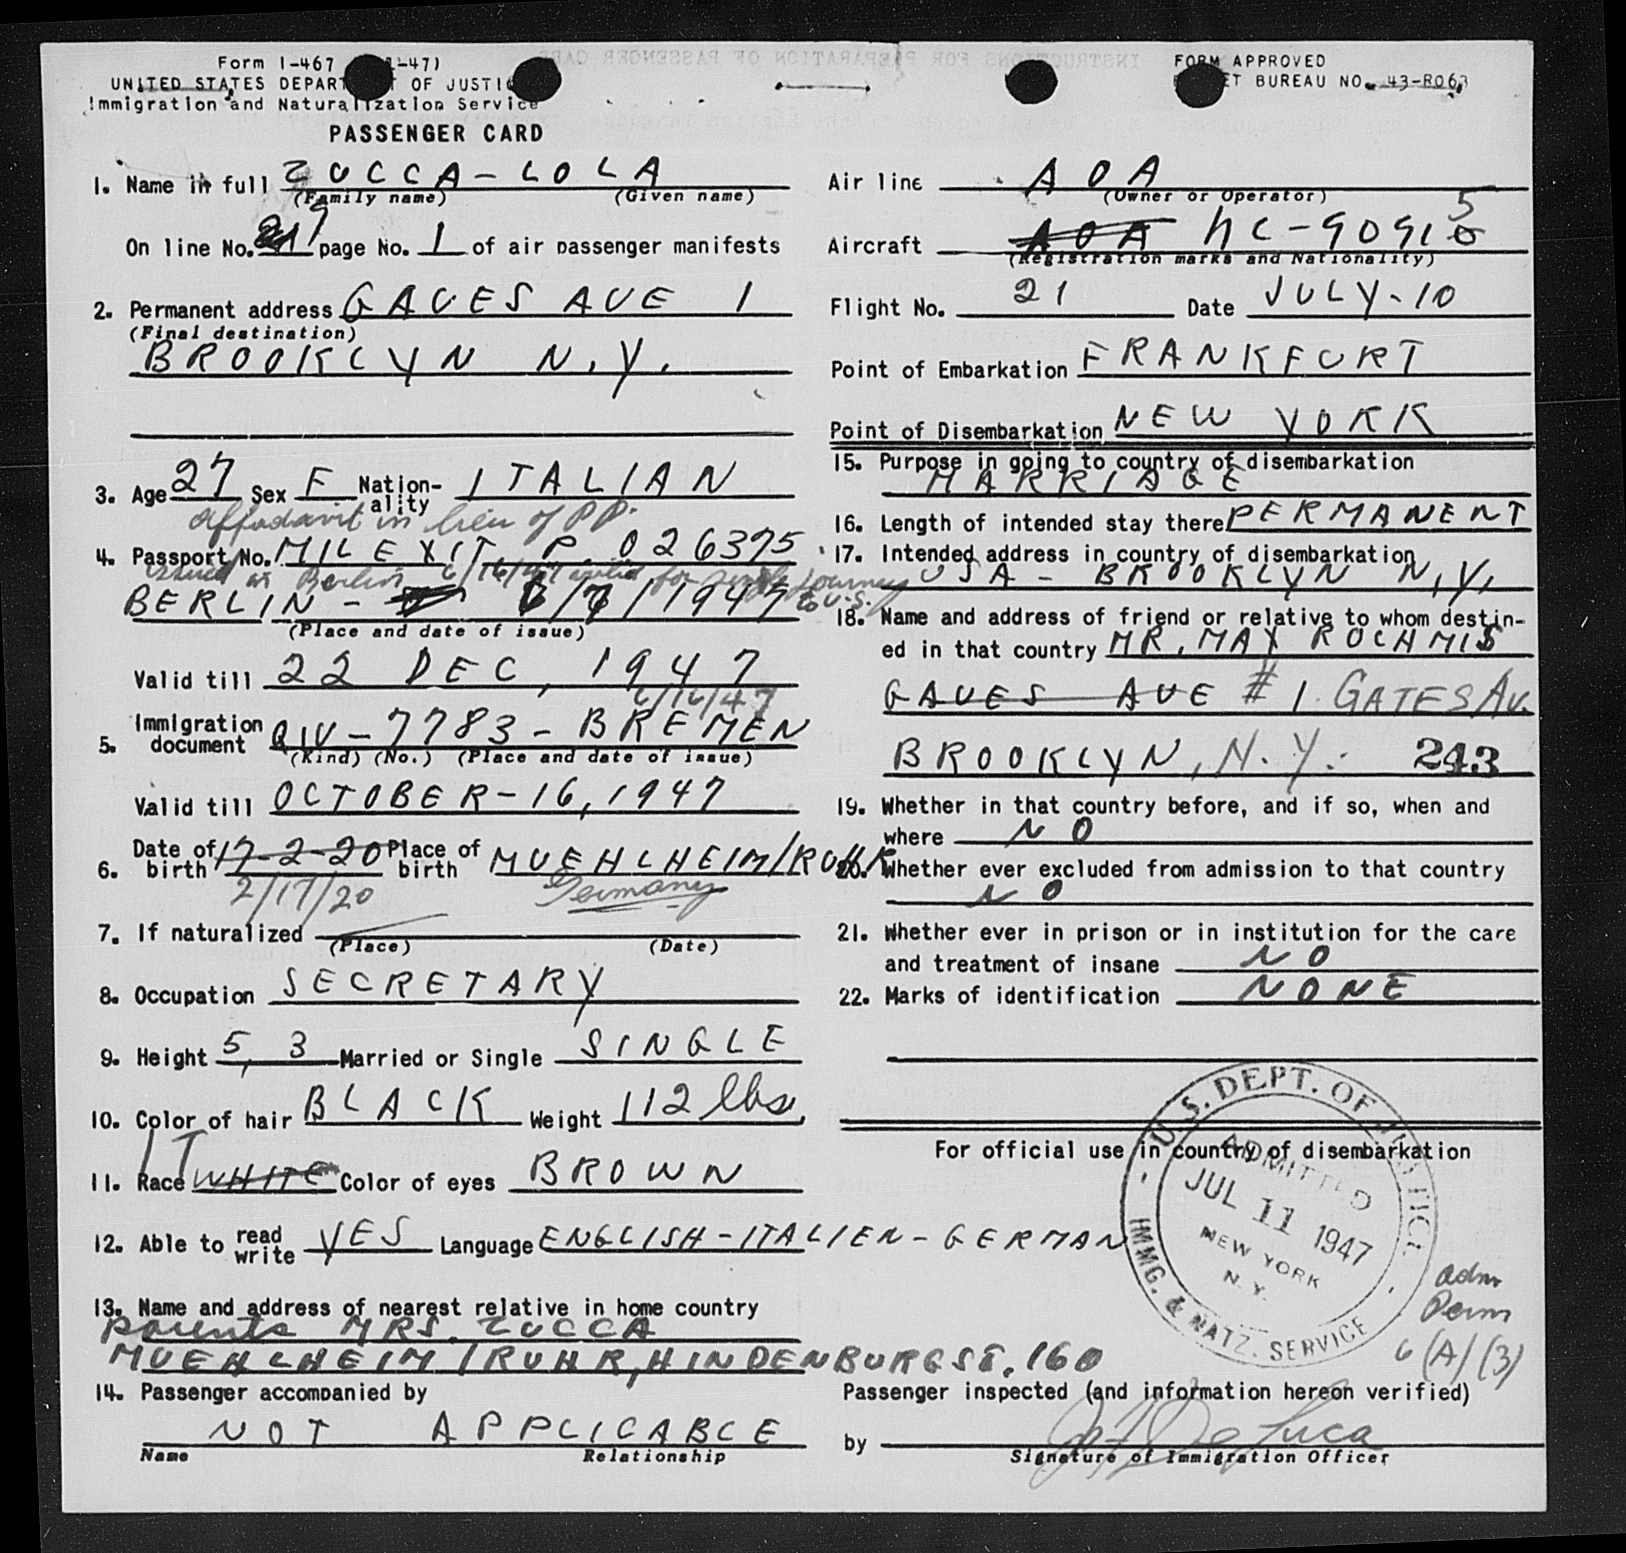 Form I-467 -47)
UNITED STATES DEPARTMENT OF JUSTICE
Immigration and Naturalization Service
PASSENGER CARD
FORM APPROVED
BUDGET BUREAU NO. 43-R063
1. Name in full ZUCCA-LOLA
(Family name) (Given name)
On line No. 9 page No. 1 of air passenger manifests
2. Permanent address GAVES AVE 1
(Final destination)
BROOKLYN N.Y.
3. Age 27 Sex F Nation-ality ITALIAN
affadavit in lieu of PP.
4. Passport No. MIL EXIT P. 026375
issued at Berlin 6/16/47 valid for single journey to U.S.
BERLIN - 6/ /1947
(Place and date of issue)
Valid till 22 DEC, 1947
6/16/47
5. Immigration document QIV-7783-BREMEN
(Kind) (No.) (Place and date of issue)
Valid till OCTOBER-16, 1947
6. Date of birth 17-2-20 Place of birth MUEHLHEIM/RUHR
2/17/20 Germany
7. If naturalized
(Place) (Date)
8. Occupation SECRETARY
9. Height 5, 3 Married or Single SINGLE
10. Color of hair BLACK Weight 112 lbs.
IT
11. Race WHITE Color of eyes BROWN
12. Able to read write YES Language ENGLISH-ITALIEN-GERMAN
13. Name and address of nearest relative in home country
parents MRS. ZUCCA
MUEHLHEIM/RUHR, HINDENBURGST. 160
14. Passenger accompanied by
NOT APPLICABLE
Name Relationship
Air line AOA
(Owner or Operator)
5
Aircraft AOA NC-90916
(Registration marks and Nationality)
Flight No. 21 Date JULY-10
Point of Embarkation FRANKFURT
Point of Disembarkation NEW YORK
15. Purpose in going to country of disembarkation
MARRIAGE
16. Length of intended stay there PERMANENT
17. Intended address in country of disembarkation
USA - BROOKLYN N.Y.
18. Name and address of friend or relative to whom destin-
ed in that country MR. MAX ROCHMIS
GAVES AVE # 1 GATES AV.
BROOKLYN, N.Y. 243
19. Whether in that country before, and if so, when and
where NO
20. Whether ever excluded from admission to that country
NO
21. Whether ever in prison or in institution for the care
and treatment of insane NO
22. Marks of identification NONE
For official use in country of disembarkation
U.S. DEPT. OF JUSTICE
ADMITTED
JUL 11 1947
NEW YORK
N.Y.
IMMG. & NATZ. SERVICE
adm
Perm
6(A)(3)
Passenger inspected (and information hereon verified)
by De Luca
Signature of Immigration Officer